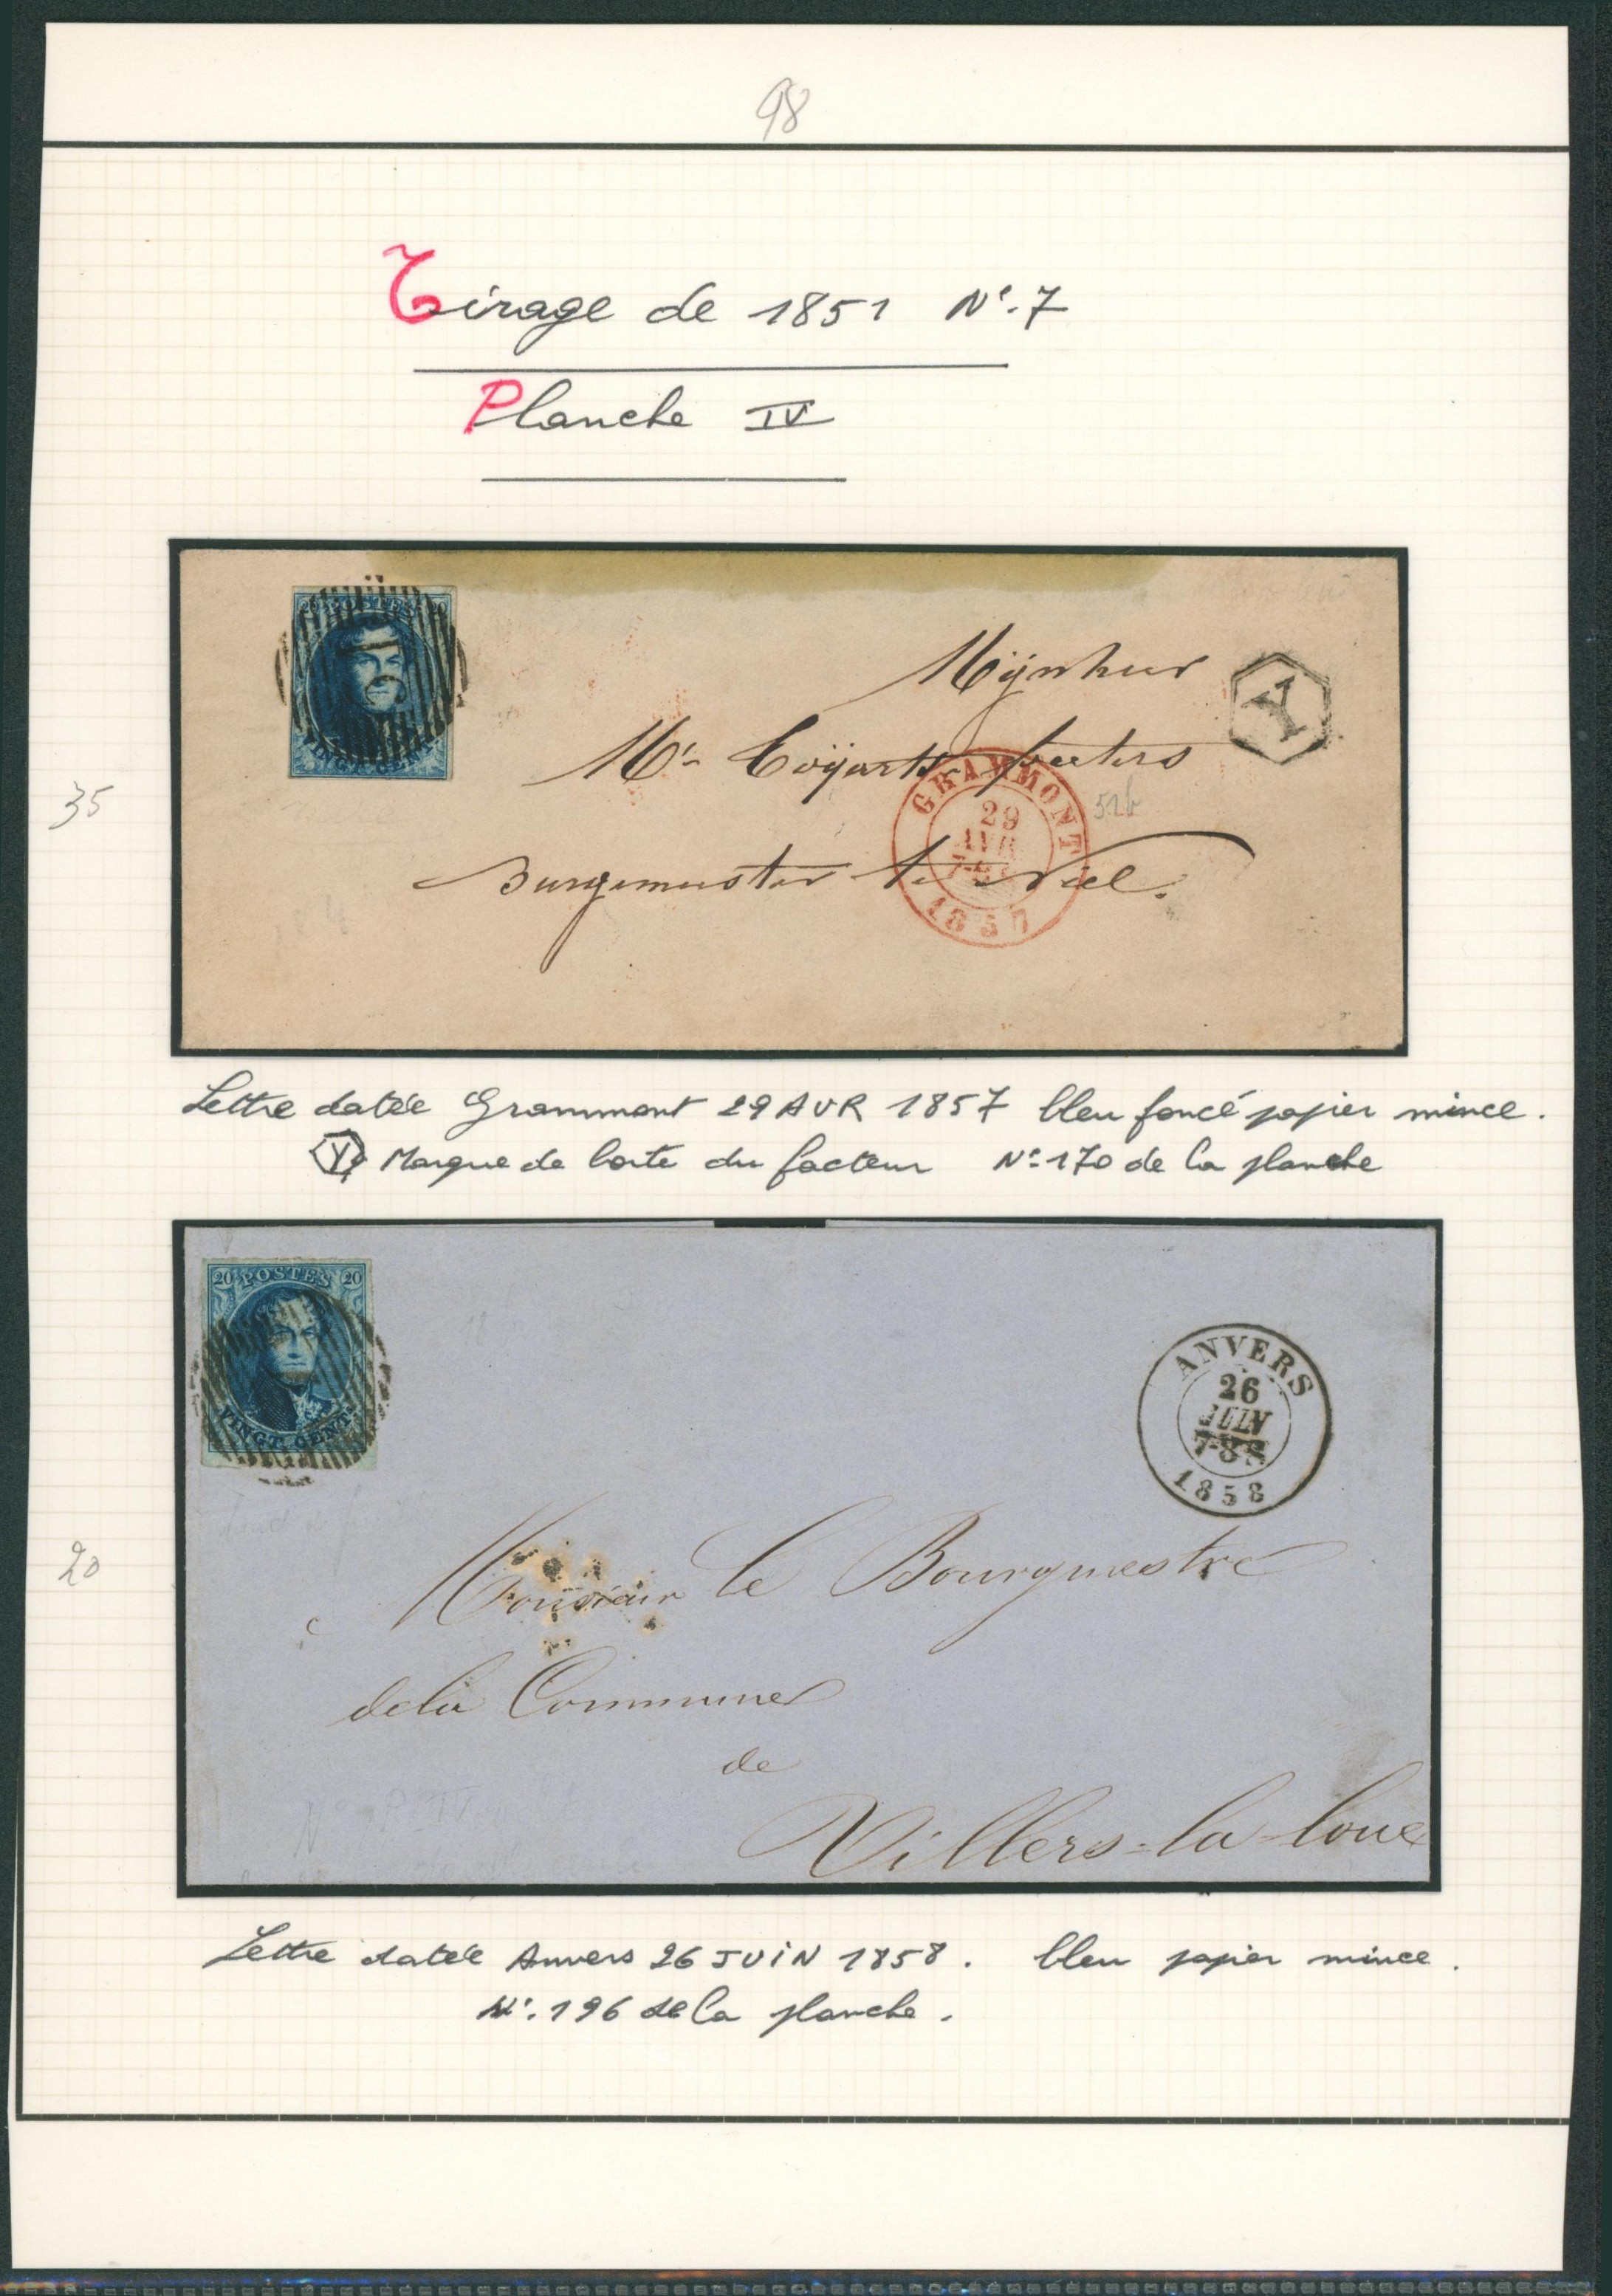 98
Tirage de 1851 N°.7
Planche IV
20 POSTES 20
VINGT CENTS
Mynheer
Y
Mr Peeters
GRAMMONT
29
AVR
1857
51b
35
Burgemeester te Niel.
Lettre datée Grammont 29 AVR 1857 bleu foncé papier mince.
Y Marque de boite du facteur N°170 de la planche
20 POSTES 20
VINGT CENTS
ANVERS
26
JUIN
7-8 S
1858
20
Monsieur le Bourgmestre
dela Commune
de
Villers-la-loue
Lettre datée Anvers 26 JUIN 1858. bleu papier mince.
N°.196 de la planche.